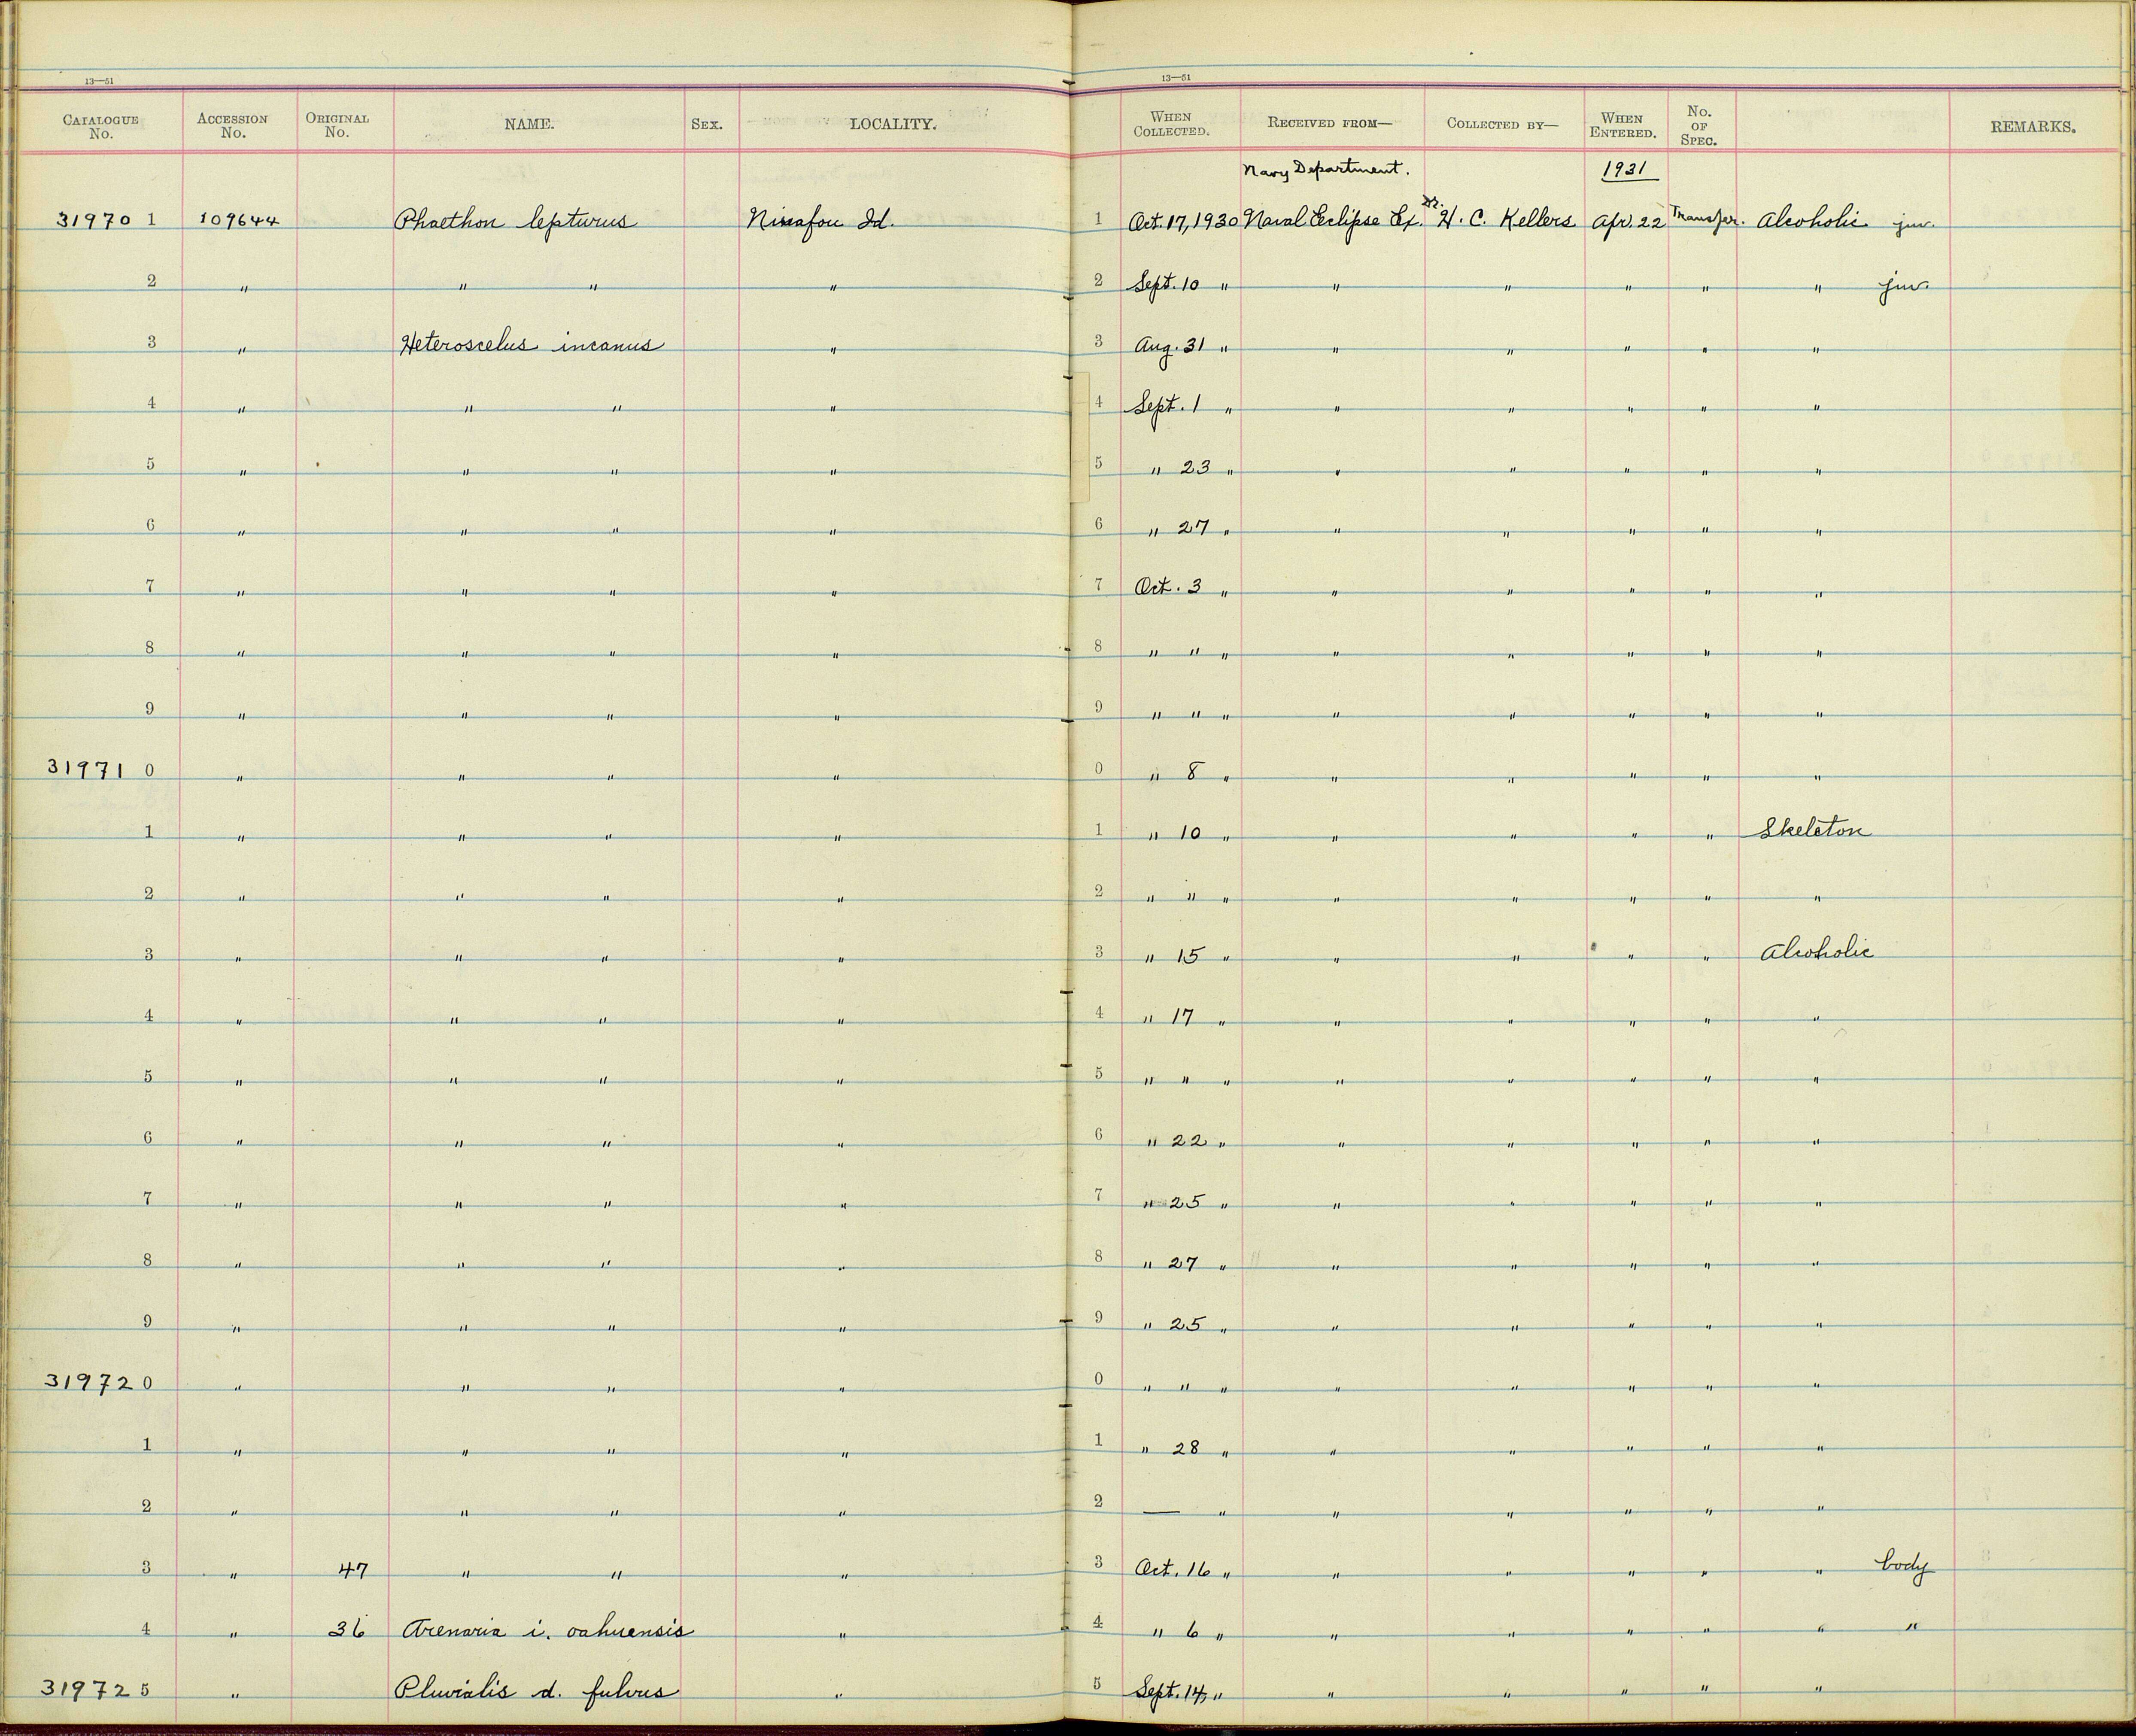 13—51 13—51
CATALOGUE No. ACCESSION No. ORIGINAL No. NAME. SEX. LOCALITY. WHEN COLLECTED. RECEIVED FROM— COLLECTED BY— WHEN ENTERED. No. OF SPEC. REMARKS.
Navy Department. 1931
31970 1 109644 Phaethon lepturus Niuafou Id. 1 Oct. 17, 1930 Naval Eclipse Ex. Dr. H. C. Kellers Apr. 22 Transfer. Alcoholic juv.
2 " " " " 2 Sept. 10 " " " " " " juv.
3 " Heteroscelus incanus " 3 Aug. 31 " " " " " "
4 " " " " 4 Sept. 1 " " " " " "
5 " " " " 5 " 23 " " " " " "
6 " " " " 6 " 27 " " " " " "
7 " " " " 7 Oct. 3 " " " " " "
8 " " " " 8 " " " " " " " "
9 " " " " 9 " " " " " " " "
31971 0 " " " " 0 " 8 " " " " " "
1 " " " " 1 " 10 " " " " " Skeleton
2 " " " " 2 " " " " " " " "
3 " " " " 3 " 15 " " " " " Alcoholic
4 " " " " 4 " 17 " " " " " "
5 " " " " 5 " " " " " " " "
6 " " " " 6 " 22 " " " " " "
7 " " " " 7 " 25 " " " " " "
8 " " " " 8 " 27 " " " " " "
9 " " " " 9 " 25 " " " " " "
31972 0 " " " " 0 " " " " " " " "
1 " " " " 1 " 28 " " " " " "
2 " " " " 2 — " " " " " "
3 " 47 " " " 3 Oct. 16 " " " " " " body
4 " 36 Arenaria i. oahuensis " 4 " 6 " " " " " " "
31972 5 " Pluvialis d. fulvus " 5 Sept. 14, " " " " " "